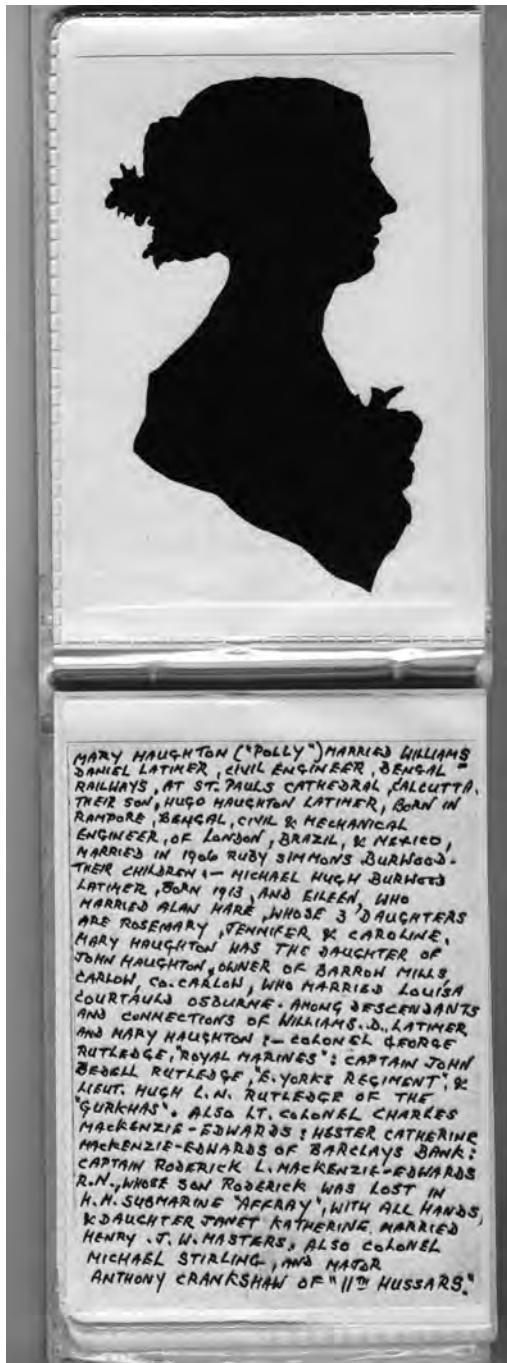 MARY HAUGHTON ("POLLY") MARRIED WILLIAMS
DANIEL LATIMER, CIVIL ENGINEER, BENGAL -
RAILWAYS, AT ST. PAULS CATHEDRAL, CALCUTTA.
THEIR SON, HUGO HAUGHTON LATIMER, BORN IN
RAMPORE, BENGAL, CIVIL & MECHANICAL
ENGINEER, OF LONDON, BRAZIL, & MEXICO,
MARRIED IN 1906 RUBY SIMMONS BURWOOD.
THEIR CHILDREN :- MICHAEL HUGH BURWOOD
LATIMER, BORN 1913, AND EILEEN, WHO
MARRIED ALAN HARE, WHOSE 3 DAUGHTERS
ARE ROSEMARY, JENNIFER & CAROLINE.
MARY HAUGHTON WAS THE DAUGHTER OF
JOHN HAUGHTON, OWNER OF BARROW MILLS,
CARLOW, CO. CARLOW, WHO MARRIED LOUISA
COURTAULD OSBURNE. AMONG DESCENDANTS
AND CONNECTIONS OF WILLIAMS. D. LATIMER
AND MARY HAUGHTON :- COLONEL GEORGE
RUTLEDGE, "ROYAL MARINES" : CAPTAIN JOHN
BEDELL RUTLEDGE, "E. YORKS REGIMENT", &
LIEUT. HUGH L.N. RUTLEDGE OF THE
"GURKHAS". ALSO LT. COLONEL CHARLES
MACKENZIE-EDWARDS : HESTER CATHERINE
MACKENZIE-EDWARDS OF BARCLAYS BANK :
CAPTAIN RODERICK L. MACKENZIE-EDWARDS
R.N., WHOSE SON RODERICK WAS LOST IN
H.M. SUBMARINE "AFFRAY", WITH ALL HANDS,
& DAUGHTER JANET KATHERINE, MARRIED
HENRY. J. W. MASTERS, ALSO COLONEL
MICHAEL STIRLING, AND MAJOR
ANTHONY CRANKSHAW OF "11TH HUSSARS."